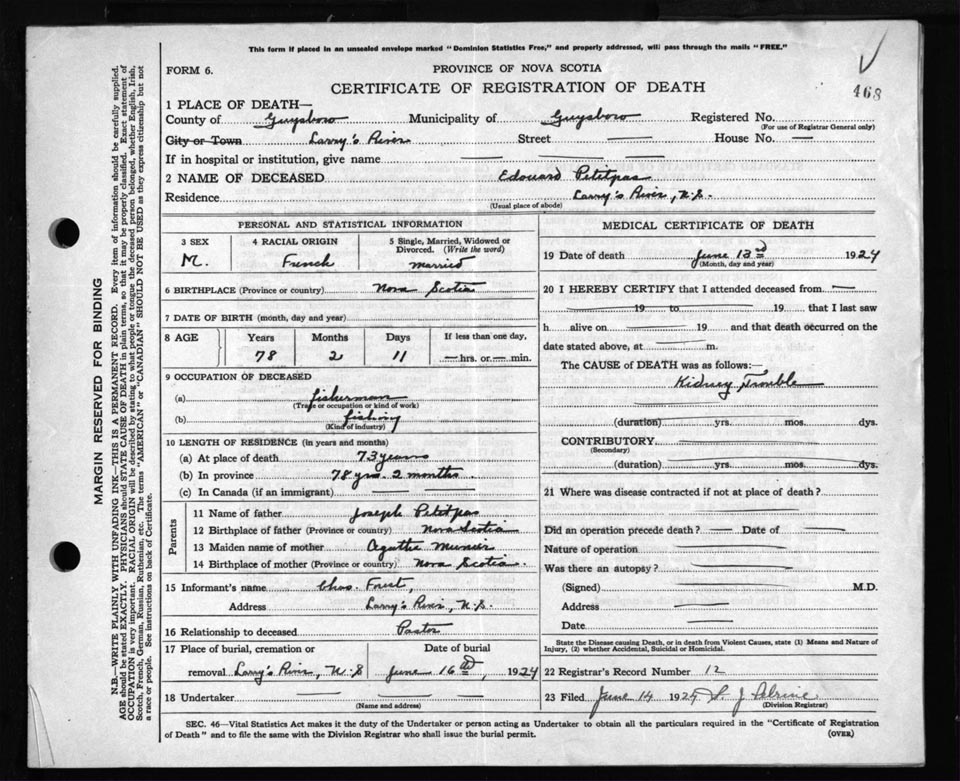 This form if placed in an unsealed envelope marked "Dominion Statistics Free," and properly addressed, will pass through the mails "FREE."
FORM 6.
PROVINCE OF NOVA SCOTIA
468
CERTIFICATE OF REGISTRATION OF DEATH
1 PLACE OF DEATH—
County of Guysboro Municipality of Guysboro Registered No.
(For use of Registrar General only)
City or Town Larry's River Street — House No. —
If in hospital or institution, give name — — —
2 NAME OF DECEASED Edouard Petitpas
Residence Larry's River, N.S.
(Usual place of abode)
PERSONAL AND STATISTICAL INFORMATION
3 SEX
M.
4 RACIAL ORIGIN
French
5 Single, Married, Widowed or
Divorced. (Write the word)
married
6 BIRTHPLACE (Province or country) Nova Scotia
7 DATE OF BIRTH (month, day and year)
8 AGE
Years Months Days If less than one day,
78 2 11 — hrs. or — min.
9 OCCUPATION OF DECEASED
(a) fisherman
(Trade or occupation or kind of work)
(b) fishing
(Kind of industry)
10 LENGTH OF RESIDENCE (in years and months)
(a) At place of death 73 years
(b) In province 78 yrs. 2 months.
(c) In Canada (if an immigrant) — —
Parents
11 Name of father Joseph Petitpas
12 Birthplace of father (Province or country) Nova Scotia
13 Maiden name of mother Agathe
14 Birthplace of mother (Province or country) Nova Scotia.
15 Informant's name Chas. Forest,
Address Larry's River, N.S.
16 Relationship to deceased Pastor
17 Place of burial, cremation or
removal Larry's River, N.S
Date of burial
June 16th, 1924
18 Undertaker — —
(Name and address)
MEDICAL CERTIFICATE OF DEATH
19 Date of death June 13d 1924
(Month, day and year)
20 I HEREBY CERTIFY that I attended deceased from —
— 19 to — 19 that I last saw
h alive on — 19 and that death occurred on
date stated above, at — m.
The CAUSE of DEATH was as follows:—
Kidney Trouble
(duration) yrs. mos. dys.
CONTRIBUTORY
(Secondary)
(duration) yrs. mos. dys.
21 Where was disease contracted if not at place of death?
Did an operation precede death? — Date of —
Nature of operation
Was there an autopsy?
(Signed) M.D.
Address —
Date —
State the Disease causing Death, or in death from Violent Causes, state (1) Means and Nature of
Injury, (2) whether Accidental, Suicidal or Homicidal.
22 Registrar's Record Number 12
23 Filed June 14 1924 J
(Division Registrar)
SEC. 46—Vital Statistics Act makes it the duty of the Undertaker or person acting as Undertaker to obtain all the particulars required in the "Certificate of Registration
of Death" and to file the same with the Division Registrar who shall issue the burial permit.
(OVER)
MARGIN RESERVED FOR BINDING
N.B.—WRITE PLAINLY WITH UNFADING INK—THIS IS A PERMANENT RECORD. Every item of information should be carefully supplied.
AGE should be stated EXACTLY. PHYSICIANS should STATE CAUSE OF DEATH in plain terms, so that it may be properly classified. Exact statement of
OCCUPATION is very important. RACIAL ORIGIN will be described by stating to what people or tongue the deceased person belonged, whether English, Irish,
Scotch, French, German, Russian, Ruthenian, etc. The terms "AMERICAN" or "CANADIAN" SHOULD NOT BE USED as they express citizenship but not
a race or people. See instructions on back of Certificate.